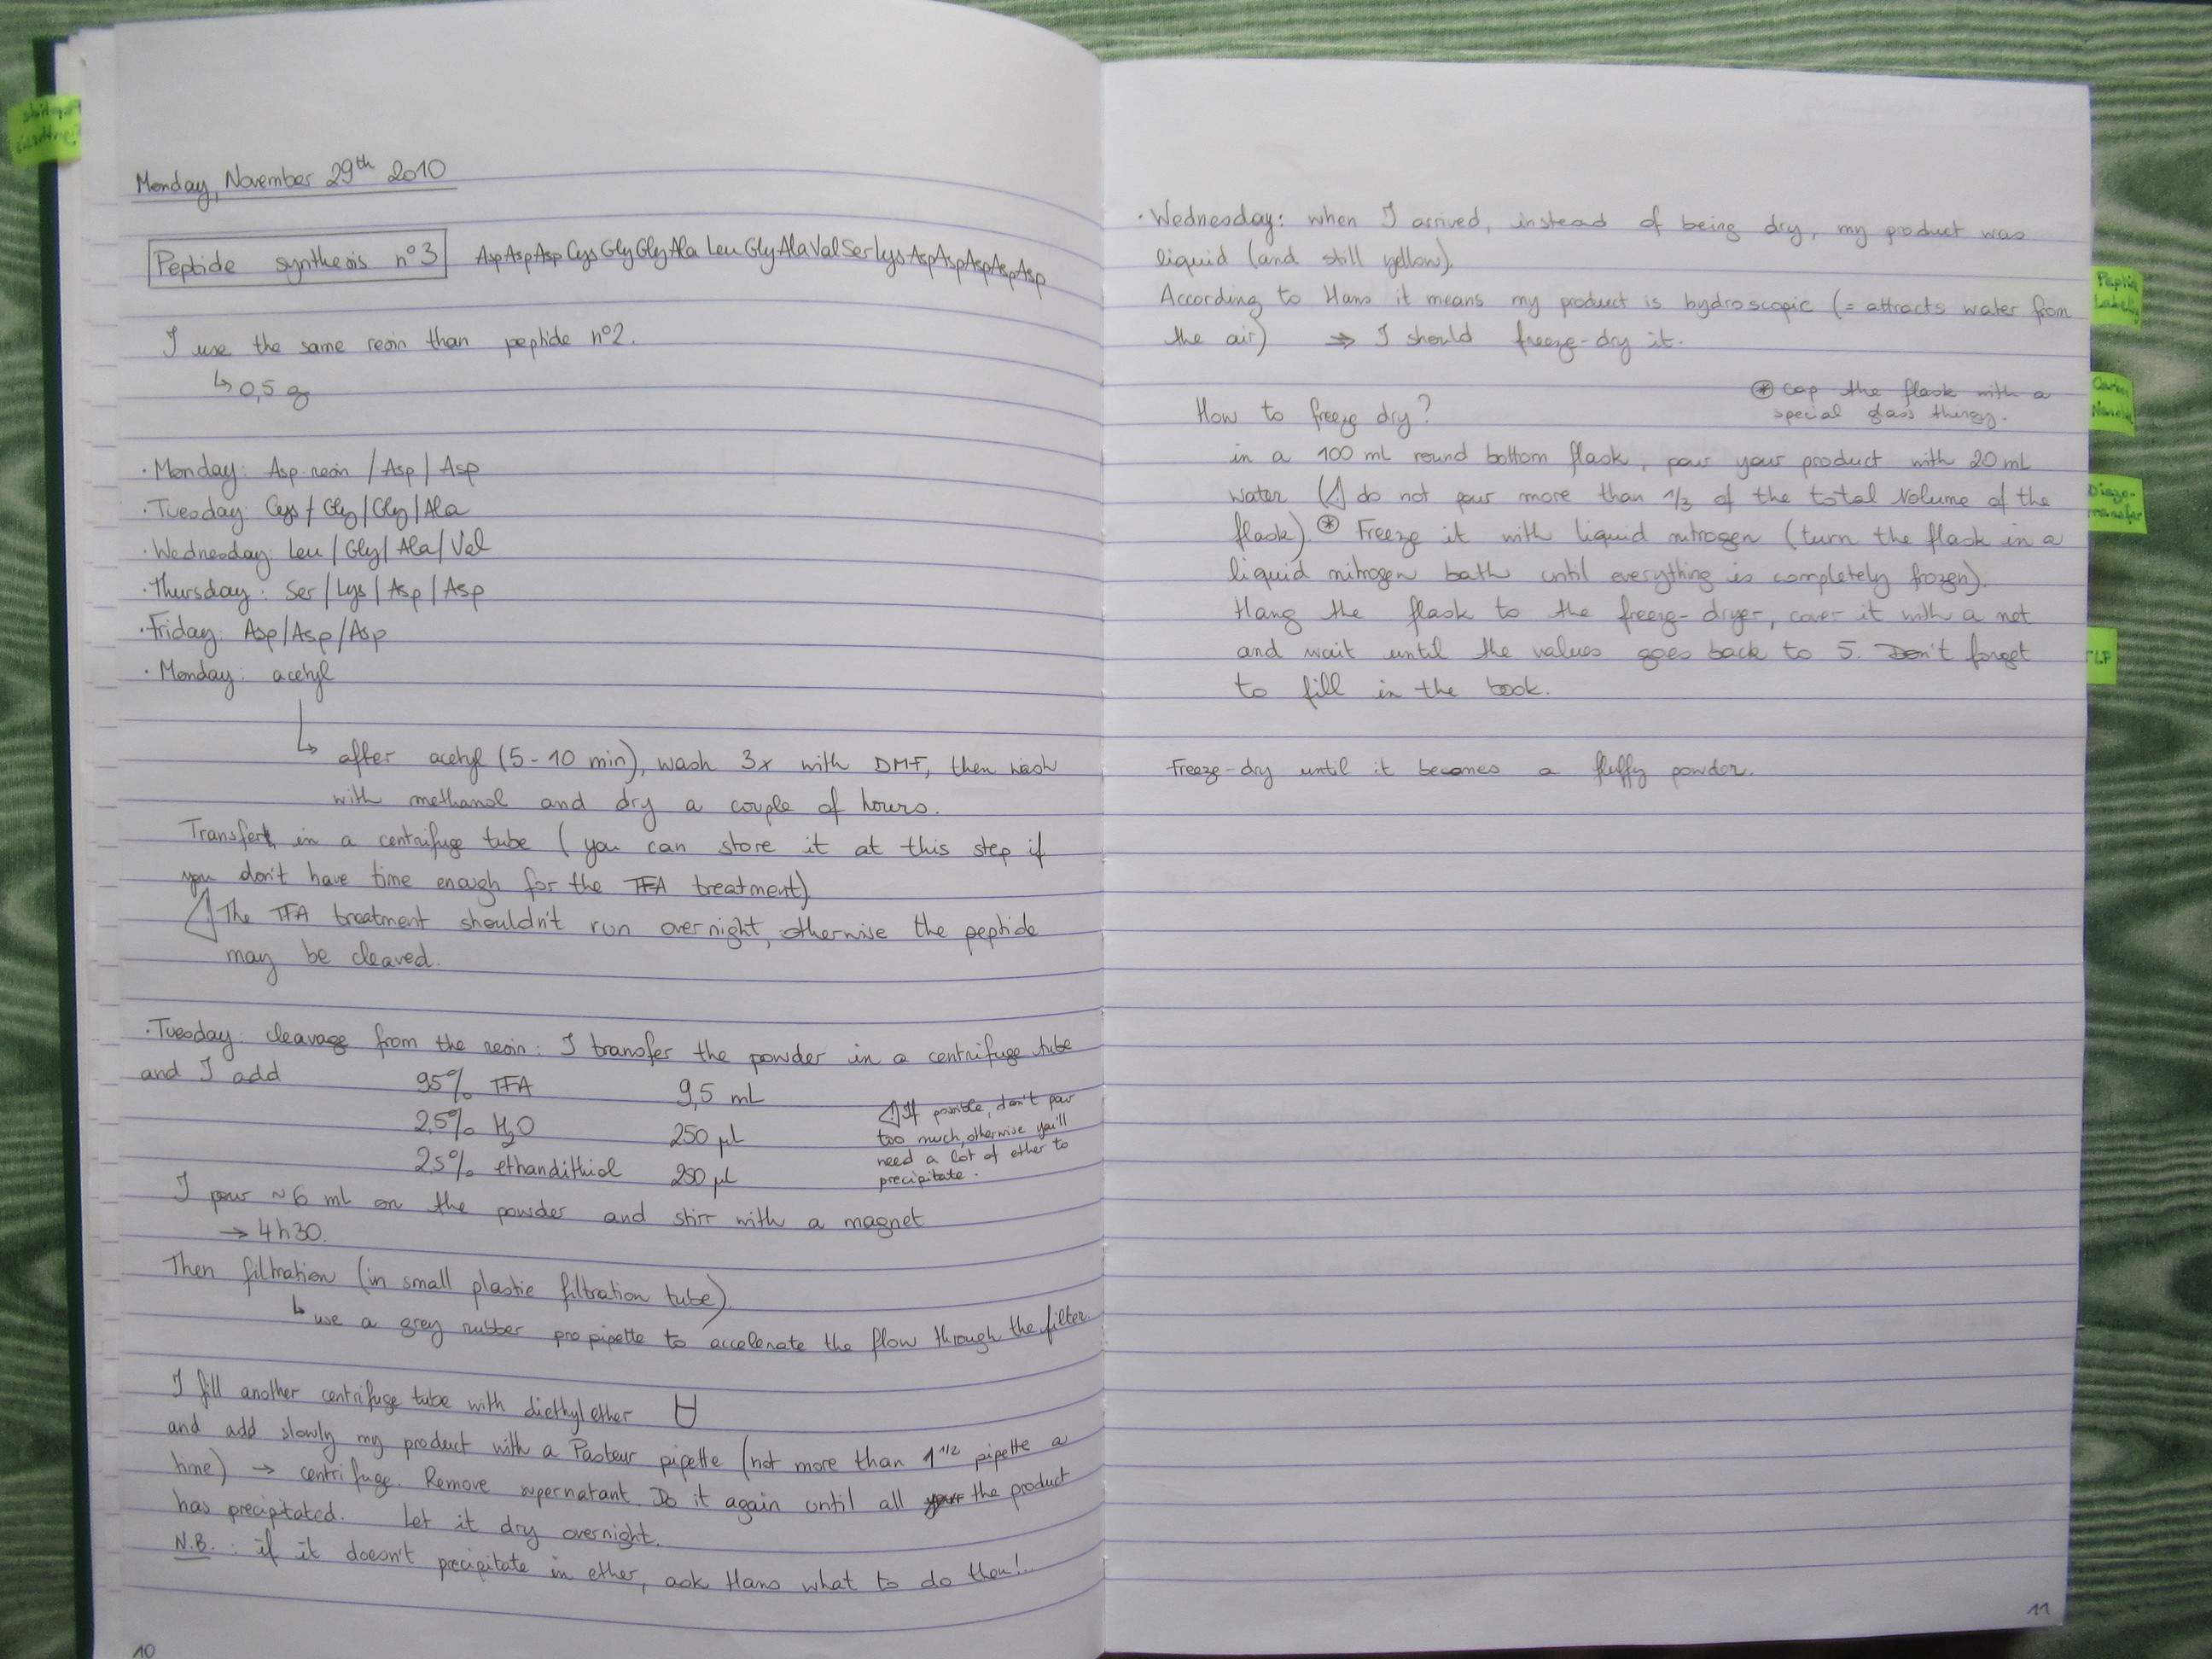 Peptide
Synthesis
Monday, November 29th 2010
Peptide synthesis n°3 AspAspAspCysGlyGlyAlaLeuGlyAlaValSerLysAspAspAspAspAsp
I use the same resin than peptide n°2.
↳ 0,5 g
· Monday: Asp-resin / Asp / Asp
· Tuesday: Cys / Gly / Gly / Ala
· Wednesday: Leu / Gly / Ala / Val
· Thursday: Ser / Lys / Asp / Asp
· Friday: Asp / Asp / Asp
· Monday: acetyl
↳ after acetyl (5-10 min), wash 3x with DMF, then wash
with methanol and dry a couple of hours.
Transfert in a centrifuge tube (you can store it at this step if
you don't have time enough for the TFA treatment)
⚠ The TFA treatment shouldn't run overnight, otherwise the peptide
may be cleaved.
· Tuesday: cleavage from the resin: I transfer the powder in a centrifuge tube
and I add 95% TFA 9,5 mL
2,5% H2O 250 µL
2,5% ethandithiol 250 µL
⚠ If possible, don't pour
too much, otherwise you'll
need a lot of ether to
precipitate.
I pour ~6 mL on the powder and stirr with a magnet
→ 4h30.
Then filtration (in small plastic filtration tube)
↳ use a grey rubber propipette to accelerate the flow through the filter
I fill another centrifuge tube with diethyl ether
and add slowly my product with a Pasteur pipette (not more than 1 1/2 pipette a
time) → centrifuge. Remove supernatant. Do it again until all your the product
has precipitated. Let it dry overnight.
N.B.: if it doesn't precipitate in ether, ask Hans what to do then!..
10
· Wednesday: when I arrived, instead of being dry, my product was
liquid (and still yellow).
According to Hans it means my product is hydroscopic (= attracts water from
the air) ⇒ I should freeze-dry it.
⊛ cap the flask with a
special glass thingy.
How to freeze dry?
in a 100 mL round bottom flask, pour your product with 20 mL
water (⚠ do not pour more than 1/3 of the total volume of the
flask). ⊛ Freeze it with liquid nitrogen (turn the flask in a
liquid nitrogen bath until everything is completely frozen).
Hang the flask to the freeze-dryer, cover it with a net
and wait until the values goes back to 5. Don't forget
to fill in the book.
Freeze-dry until it becomes a fluffy powder.
11
Peptide
Labelling
Diazo-
transfer